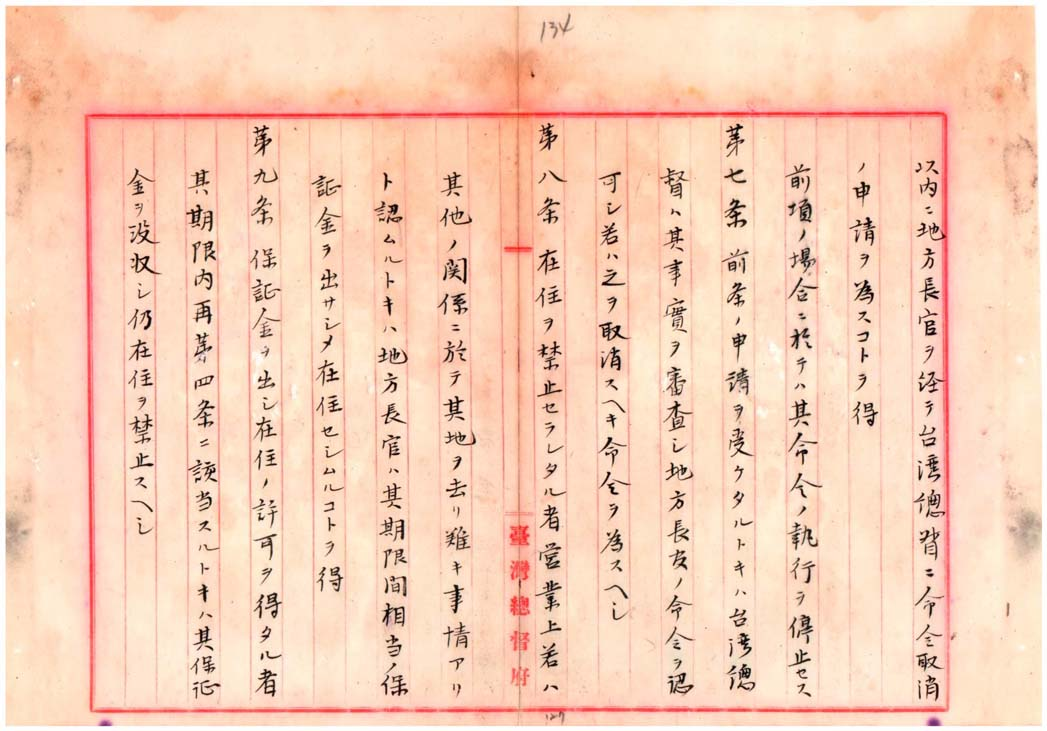 134
以内ニ地方長官ヲ経テ台湾総督ニ命令取消
ノ申請ヲ為スコトヲ得
前項ノ場合ニ於テハ其命令ノ執行ヲ停止セス
第七条 前条ノ申請ヲ受ケタルトキハ台湾総
督ハ其事實ヲ審査シ地方長官ノ命令ヲ認
可シ若ハ之ヲ取消スヘキ命令ヲ為スヘシ
第八条 在住ヲ禁止セラレタル者営業上若ハ
臺灣總督府
其他ノ関係ニ於テ其地ヲ去リ難キ事情アリ
ト認ムルトキハ地方長官ハ其期限間相当ノ保
証金ヲ出サシメ在住セシムルコトヲ得
第九条 保証金ヲ出シ在住ノ許可ヲ得タル者
其期限内再第四条ニ該当スルトキハ其保証
金ヲ没収シ仍在住ヲ禁止スヘシ
127